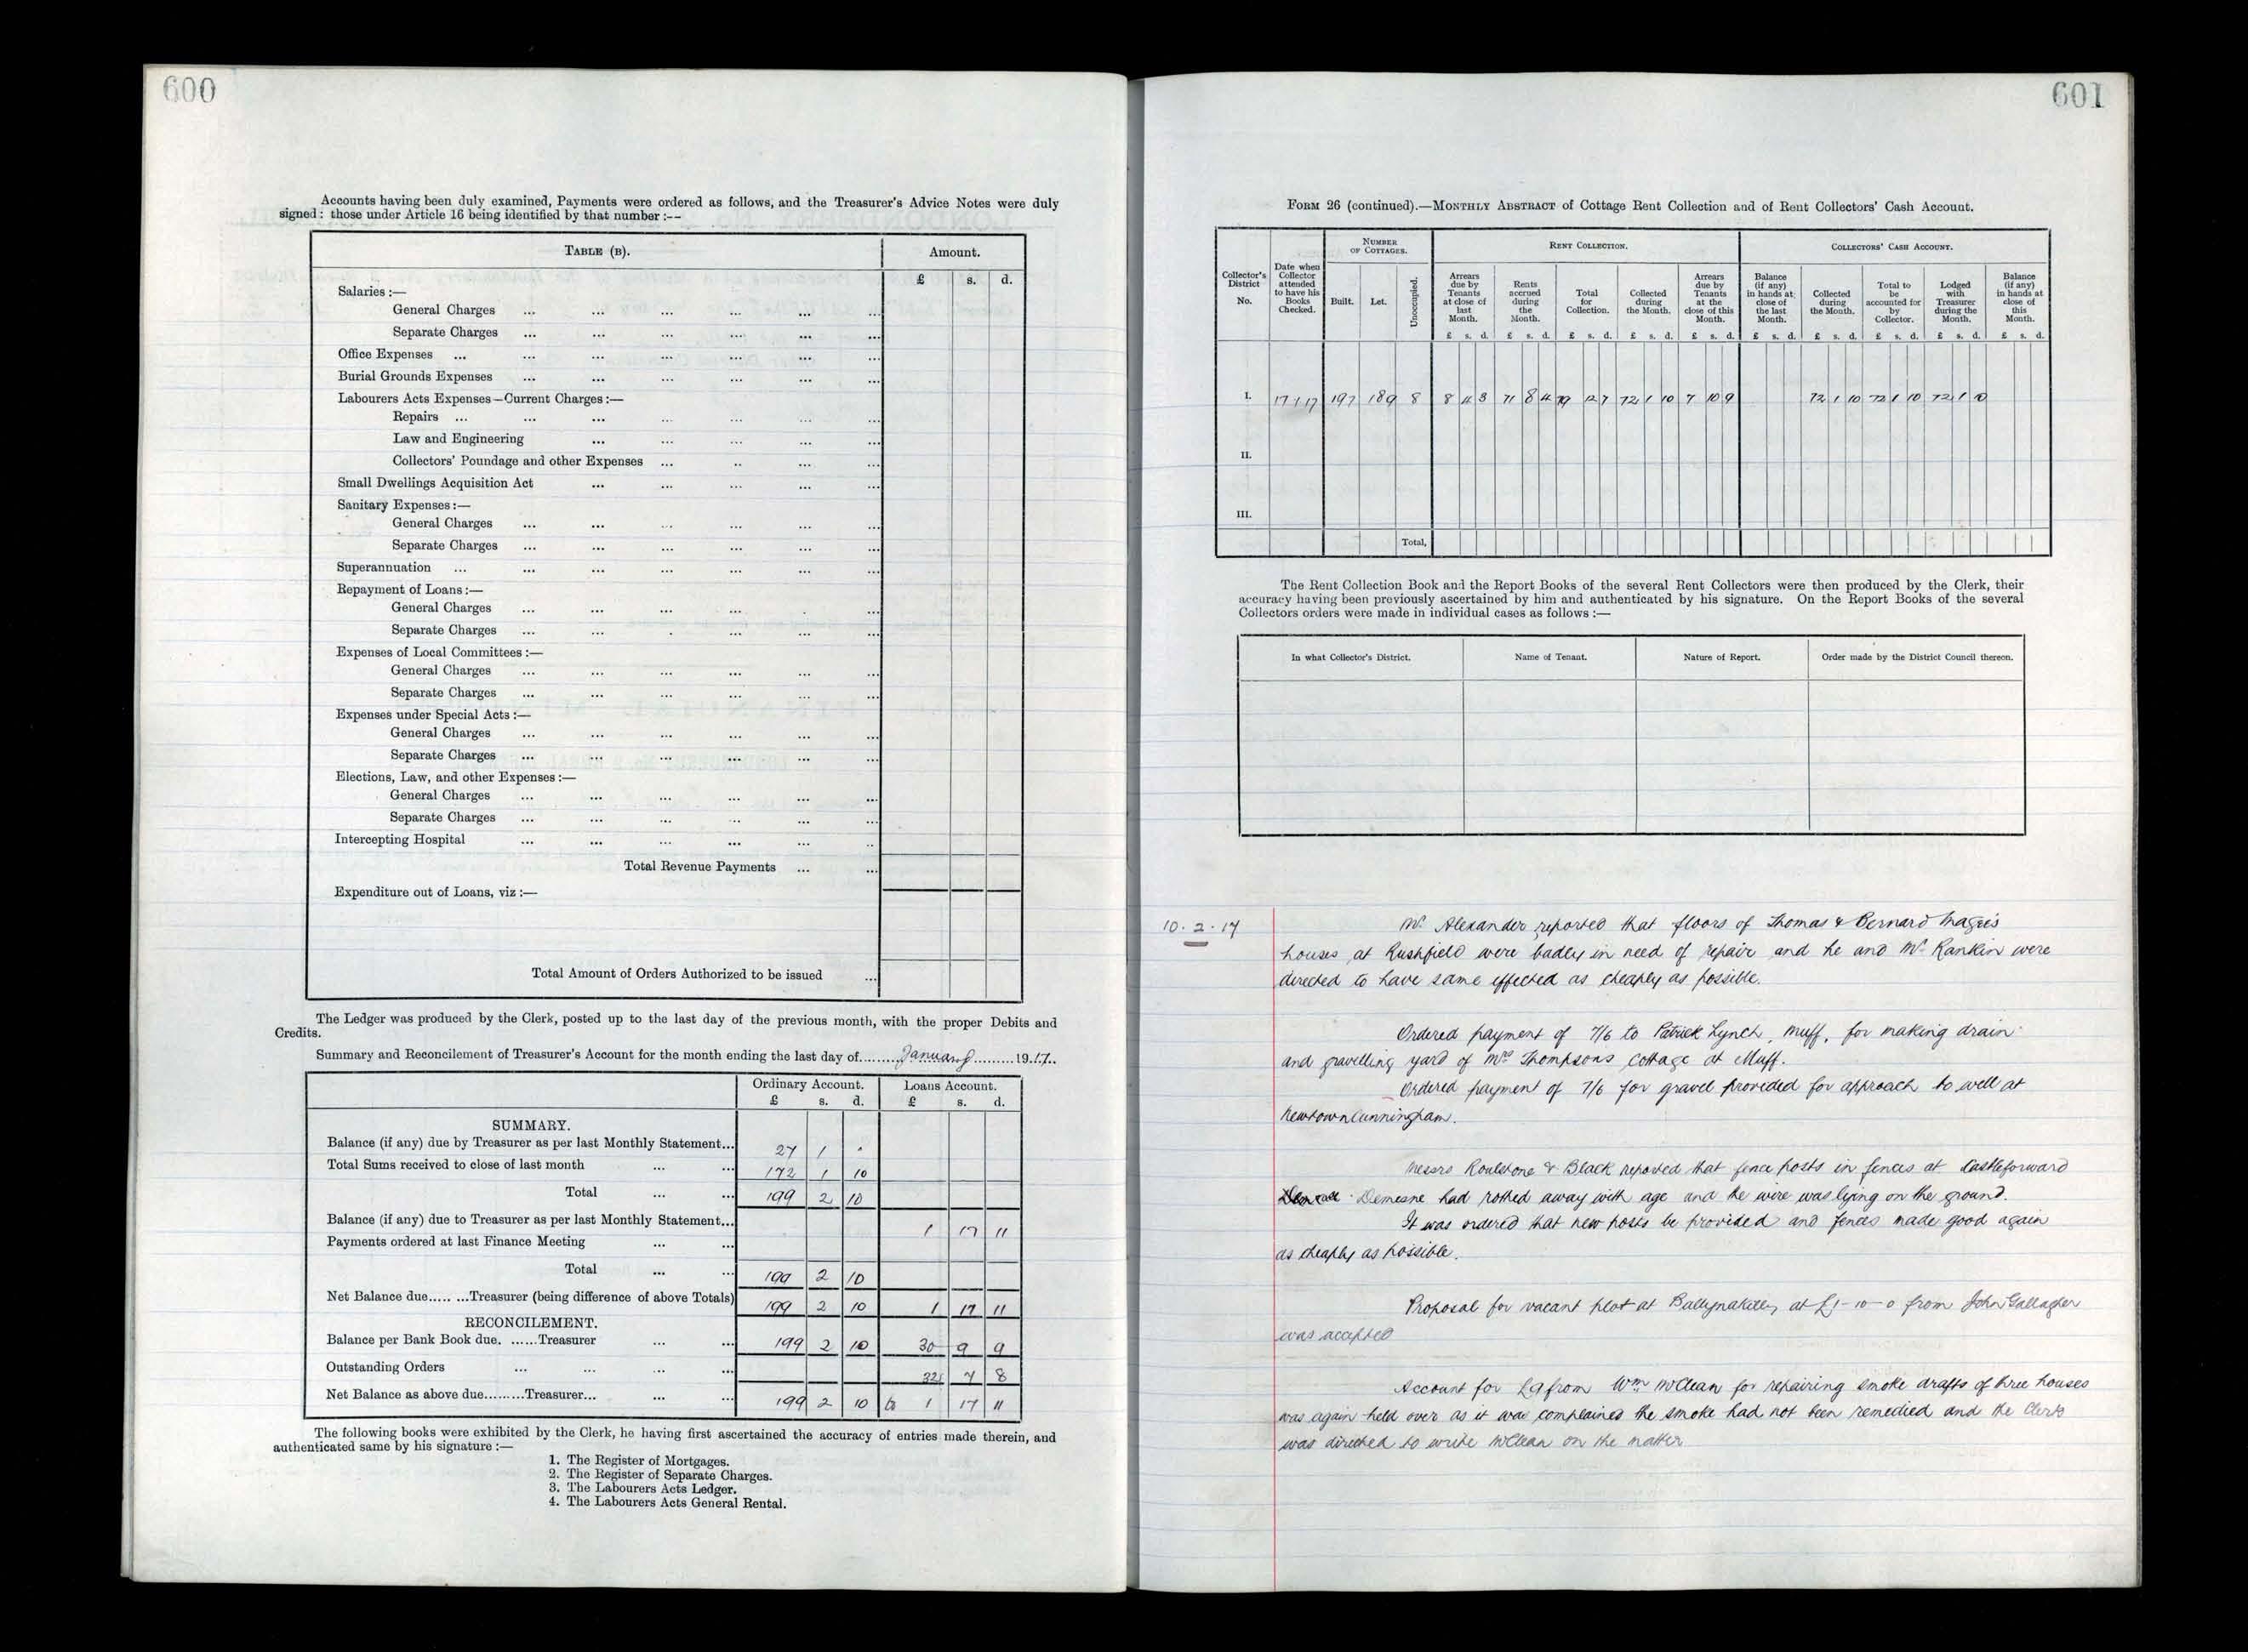 600
Accounts having been duly examined, Payments were ordered as follows, and the Treasurer's Advice Notes were duly
signed: those under Article 16 being identified by that number :--
TABLE (B).
Amount.
£ s. d.
Salaries :—
General Charges ... ... ... ... ... ...
Separate Charges ... ... ... ... ... ...
Office Expenses ... ... ... ... ... ...
Burial Grounds Expenses ... ... ... ... ... ...
Labourers Acts Expenses—Current Charges :—
Repairs ... ... ... ... ... ...
Law and Engineering ... ... ... ... ...
Collectors' Poundage and other Expenses ... ... ... ...
Small Dwellings Acquisition Act ... ... ... ... ...
Sanitary Expenses :—
General Charges ... ... ... ... ... ...
Separate Charges ... ... ... ... ... ...
Superannuation ... ... ... ... ... ... ...
Repayment of Loans :—
General Charges ... ... ... ... ... ...
Separate Charges ... ... ... ... ... ...
Expenses of Local Committees :—
General Charges ... ... ... ... ... ...
Separate Charges ... ... ... ... ... ...
Expenses under Special Acts :—
General Charges ... ... ... ... ... ...
Separate Charges ... ... ... ... ... ...
Elections, Law, and other Expenses :—
General Charges ... ... ... ... ... ...
Separate Charges ... ... ... ... ... ...
Intercepting Hospital ... ... ... ... ... ...
Total Revenue Payments ... ...
Expenditure out of Loans, viz :—
Total Amount of Orders Authorized to be issued ...
The Ledger was produced by the Clerk, posted up to the last day of the previous month, with the proper Debits and
Credits.
Summary and Reconcilement of Treasurer's Account for the month ending the last day of.........January.........1917..
Ordinary Account. Loans Account.
£ s. d. £ s. d.
SUMMARY.
Balance (if any) due by Treasurer as per last Monthly Statement... 27 1 .
Total Sums received to close of last month ... ... 172 1 10
Total ... ... 199 2 10
Balance (if any) due to Treasurer as per last Monthly Statement... 1 17 11
Payments ordered at last Finance Meeting ... ...
Total ... ... 199 2 10
Net Balance due..... ...Treasurer (being difference of above Totals) 199 2 10 1 17 11
RECONCILEMENT.
Balance per Bank Book due. ......Treasurer ... ... 199 2 10 30 9 9
Outstanding Orders ... ... ... ... 32 7 8
Net Balance as above due.........Treasurer... ... ... 199 2 10 to 1 17 11
The following books were exhibited by the Clerk, he having first ascertained the accuracy of entries made therein, and
authenticated same by his signature :—
1. The Register of Mortgages.
2. The Register of Separate Charges.
3. The Labourers Acts Ledger.
4. The Labourers Acts General Rental.
601
FORM 26 (continued).—MONTHLY ABSTRACT of Cottage Rent Collection and of Rent Collectors' Cash Account.
NUMBER OF COTTAGES. RENT COLLECTION. COLLECTORS' CASH ACCOUNT.
Collector's District No.
Date when Collector attended to have his Books Checked.
Built. Let. Unoccupied.
Arrears due by Tenants at close of last Month.
Rents accrued during the Month.
Total for Collection.
Collected during the Month.
Arrears due by Tenants at the close of this Month.
Balance (if any) in hands at close of the last Month.
Collected during the Month.
Total to be accounted for by Collector.
Lodged with Treasurer during the Month.
Balance (if any) in hands at close of this Month.
£ s. d. £ s. d. £ s. d. £ s. d. £ s. d. £ s. d. £ s. d. £ s. d. £ s. d. £ s. d.
I. 17 1 17 197 189 8 8 4 3 71 8 4 79 12 7 72 1 10 7 10 9 72 1 10 72 1 10 72 1 10
II.
III.
Total,
The Rent Collection Book and the Report Books of the several Rent Collectors were then produced by the Clerk, their
accuracy having been previously ascertained by him and authenticated by his signature. On the Report Books of the several
Collectors orders were made in individual cases as follows :—
In what Collector's District. Name of Tenant. Nature of Report. Order made by the District Council thereon.
10.2.17
Mr. Alexander reported that floors of Thomas & Bernard Magees
houses at Rushfield were badly in need of repair and he and Mr. Rankin were
directed to have same effected as cheaply as possible.
Ordered payment of 7/6 to Patrick Lynch, Muff, for making drain
and gravelling yard of Mrs Thompsons Cottage at Muff.
Ordered payment of 7/6 for gravel provided for approach to well at
Newtowncunningham.
Messrs Roulstone & Black reported that fence posts in fences at Castleforward
Demesne had rotted away with age and the wire was lying on the ground.
It was ordered that new posts be provided and fences made good again
as cheaply as possible.
Proposal for vacant plot at Ballynakelly at £1-10-0 from John Gallagher
was accepted
Account for £9 from Wm McClean for repairing smoke drafts of three houses
was again held over as it was complained the smoke had not been remedied and the Clerk
was directed to write McClean on the matter